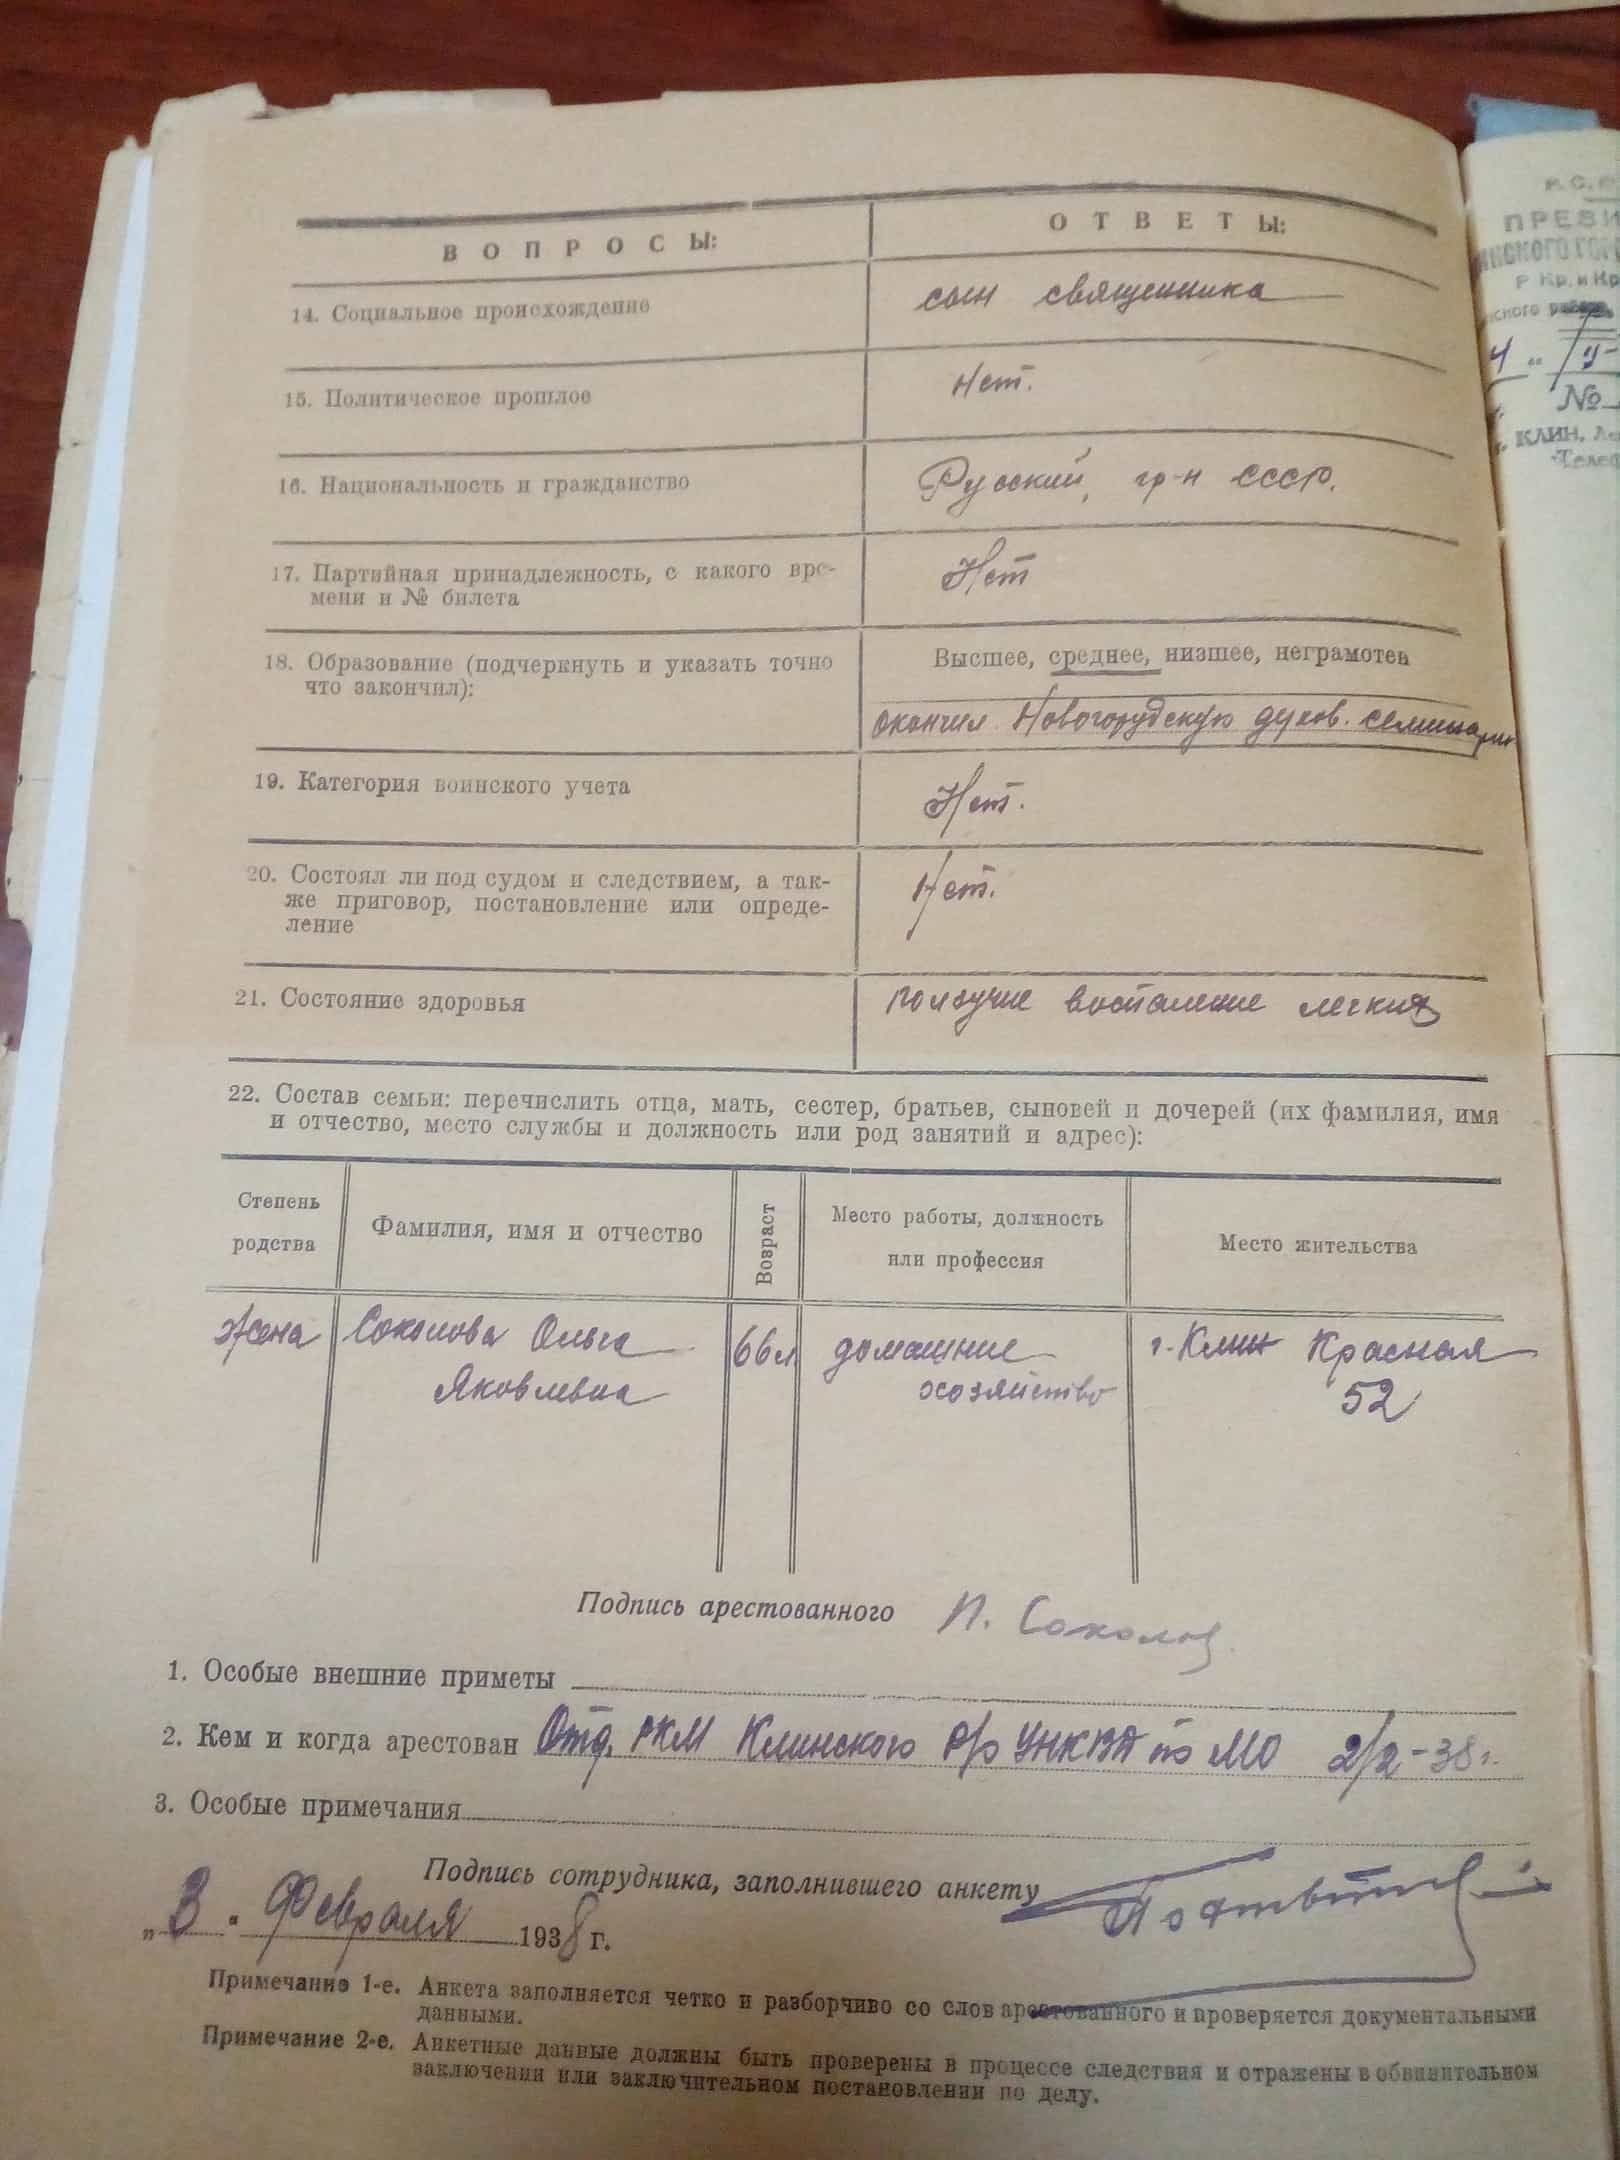 ВОПРОСЫ:
ОТВЕТЫ:
14. Социальное происхождение
сын священника
15. Политическое прошлое
Нет.
16. Национальность и гражданство
Русский, гр-н СССР.
17. Партийная принадлежность, с какого вре-
мени и № билета
Нет
18. Образование (подчеркнуть и указать точно
что закончил):
Высшее, среднее, низшее, неграмотен
окончил Новогорудскую духов. семинарию
19. Категория воинского учета
Нет.
20. Состоял ли под судом и следствием, а так-
же приговор, постановление или опреде-
ление
Нет.
21. Состояние здоровья
ползучие воспаление легких
22. Состав семьи: перечислить отца, мать, сестер, братьев, сыновей и дочерей (их фамилия, имя
и отчество, место службы и должность или род занятий и адрес):
Степень
родства
Фамилия, имя и отчество
Возраст
Место работы, должность
или профессия
Место жительства
жена
Соколова Ольга
Яковлевна
66 л
домашние
хозяйство
г. Клин Красная
52
Подпись арестованного П. Соколов
1. Особые внешние приметы
2. Кем и когда арестован Отд. РКМ Клинского Р/о УНКВД по МО 2/2-38 г.
3. Особые примечания
Подпись сотрудника, заполнившего анкету
„3" Февраля 1938 г.
Примечание 1-е. Анкета заполняется четко и разборчиво со слов арестованного и проверяется документальными
данными.
Примечание 2-е. Анкетные данные должны быть проверены в процессе следствия и отражены в обвинительном
заключении или заключительном постановлении по делу.
Р. С.
ПРЕЗИ
НСКОГО ГОР
Р. Кр. и Кр
нского района
4
№
г. КЛИН,
Телеф